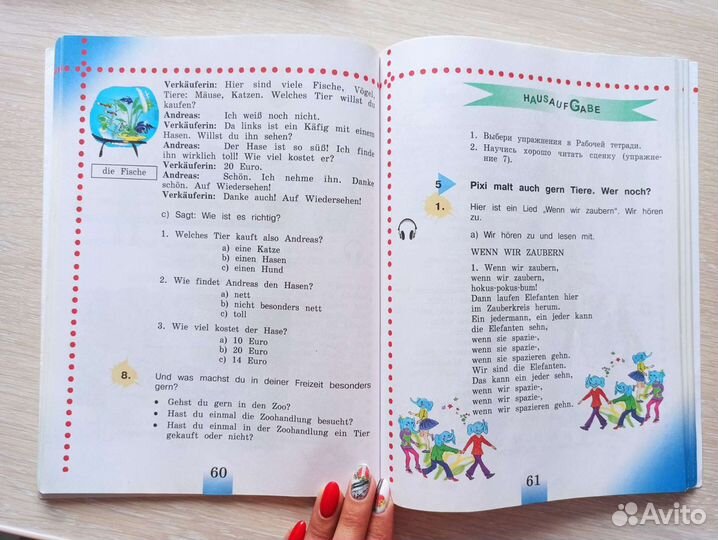 Verkäuferin: Hier sind viele Fische, Vögel,
Tiere: Mäuse, Katzen. Welches Tier willst du
kaufen?
Andreas: Ich weiß noch nicht.
Verkäuferin: Da links ist ein Käfig mit einem
Hasen. Willst du ihn sehen?
Andreas: Der Hase ist so süß! Ich finde
ihn wirklich toll! Wie viel kostet er?
Verkäuferin: 20 Euro.
Andreas: Schön. Ich nehme ihn. Danke
schön. Auf Wiedersehen!
Verkäuferin: Danke auch! Auf Wiedersehen!
die Fische
c) Sagt: Wie ist es richtig?
1. Welches Tier kauft also Andreas?
a) eine Katze
b) einen Hasen
c) einen Hund
2. Wie findet Andreas den Hasen?
a) nett
b) nicht besonders nett
c) toll
3. Wie viel kostet der Hase?
a) 10 Euro
b) 20 Euro
c) 14 Euro
8. Und was machst du in deiner Freizeit besonders
gern?
• Gehst du gern in den Zoo?
• Hast du einmal die Zoohandlung besucht?
• Hast du einmal in der Zoohandlung ein Tier
gekauft oder nicht?
60
HAUSAUFGABE
1. Выбери упражнения в Рабочей тетради.
2. Научись хорошо читать сценку (упражне-
ние 7).
5 Pixi malt auch gern Tiere. Wer noch?
1. Hier ist ein Lied „Wenn wir zaubern". Wir hören
zu.
a) Wir hören zu und lesen mit.
WENN WIR ZAUBERN
1. Wenn wir zaubern,
wenn wir zaubern,
hokus-pokus-bum!
Dann laufen Elefanten hier
im Zauberkreis herum.
Ein jedermann, ein jeder kann
die Elefanten sehn,
wenn sie spazie-,
wenn sie spazie-,
wenn sie spazieren gehn.
Wir sind die Elefanten.
Das kann ein jeder sehn,
wenn wir spazie-,
wenn wir spazie-,
wenn wir spazieren gehn.
61
Avito